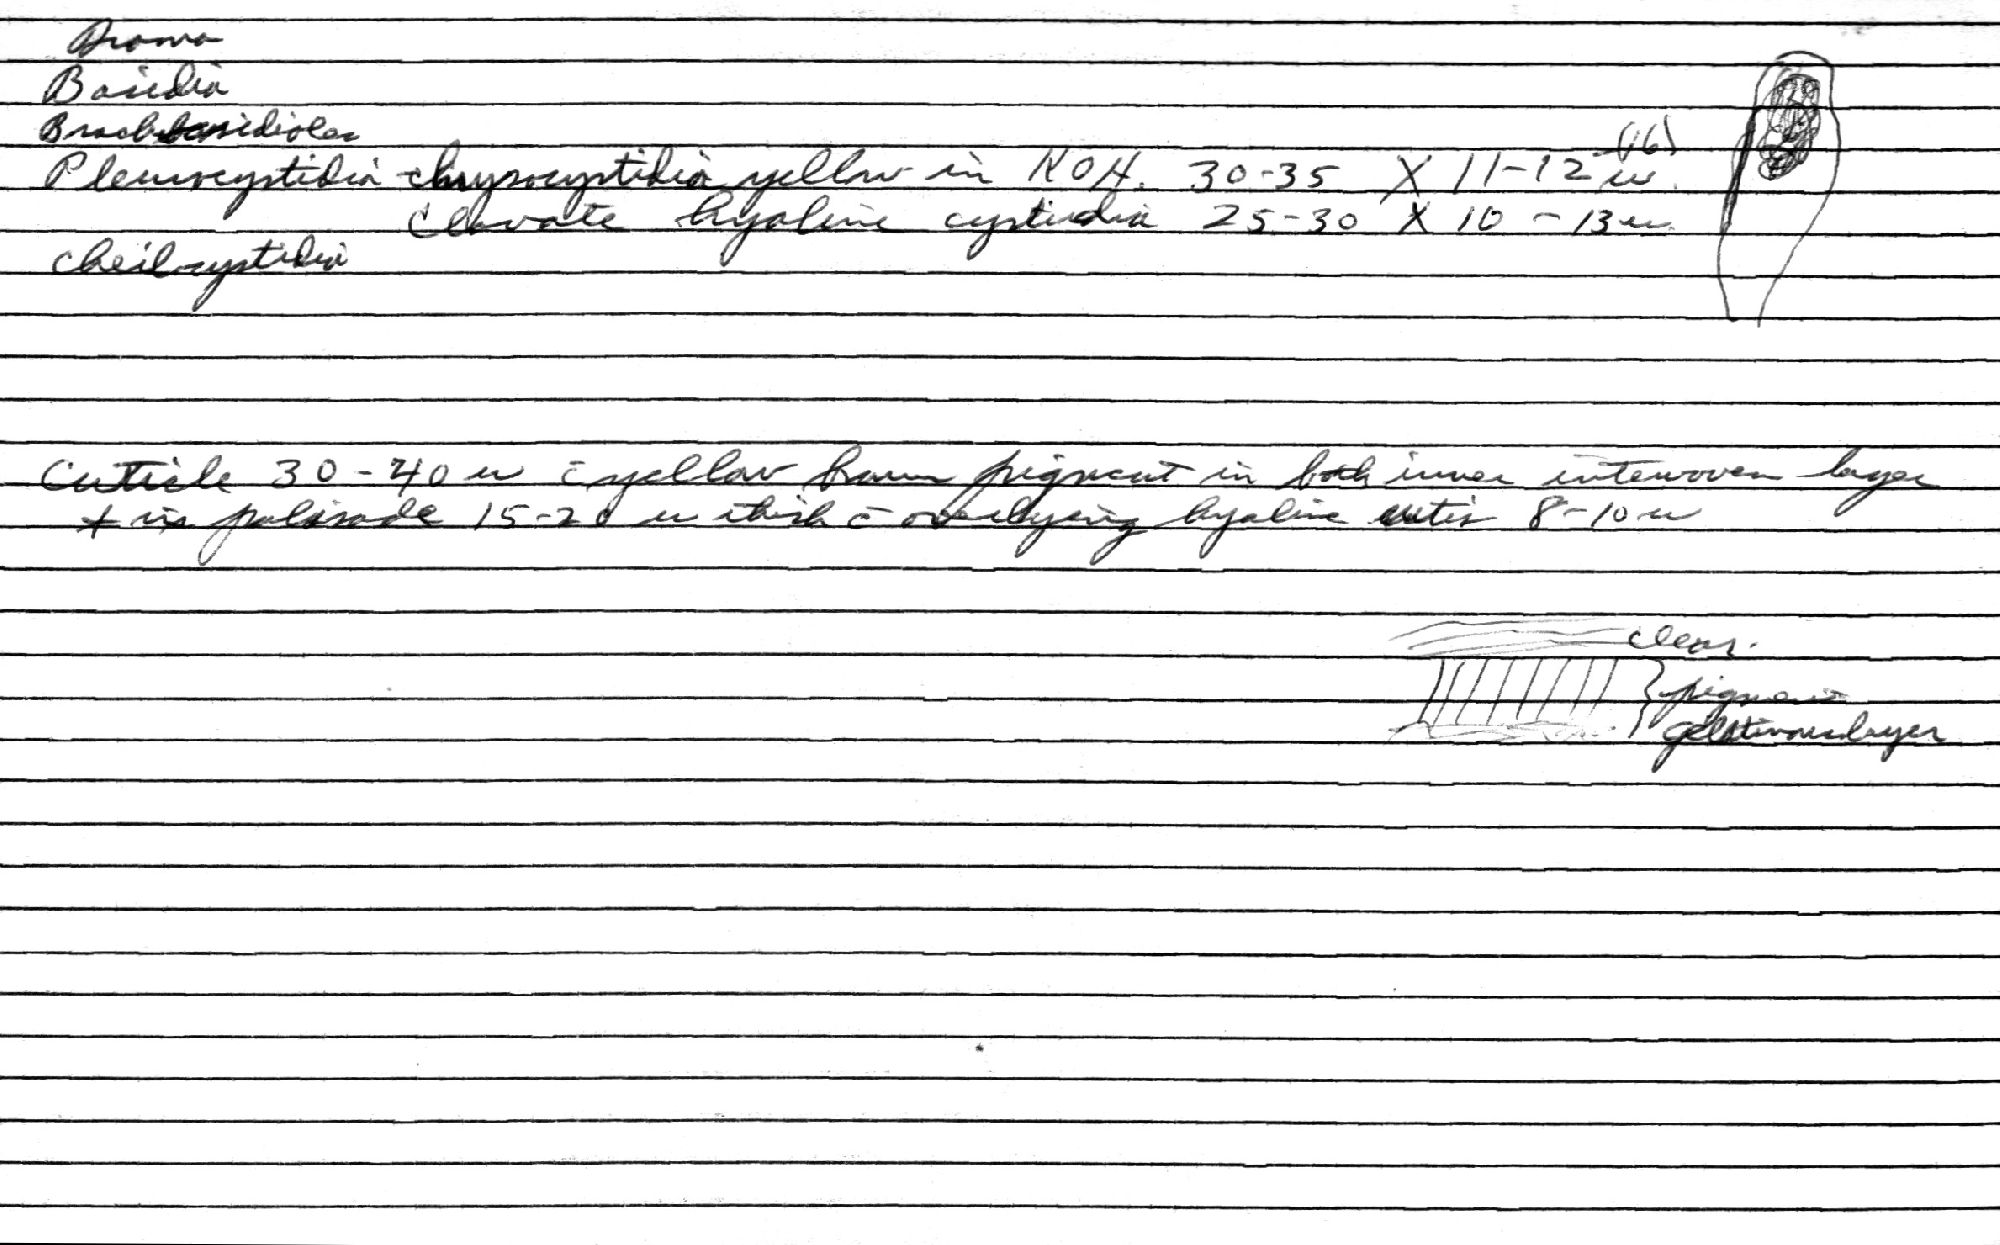 Trama
Basidia
Brachybasidioles
Pleurocystidia - chrysocystidia yellow in KOH. 30-35 X 11-12 (16) u.
Clavate hyaline cystidia 25-30 X 10-13u.
Cheilocystidia
Cuticle 30-40 u c̄ yellow brown pigment in both inner interwoven layer
+ in palisade 15-20 u thick c̄ overlying hyaline cutis 8-10 u
clear.
pigment
gelatinous layer